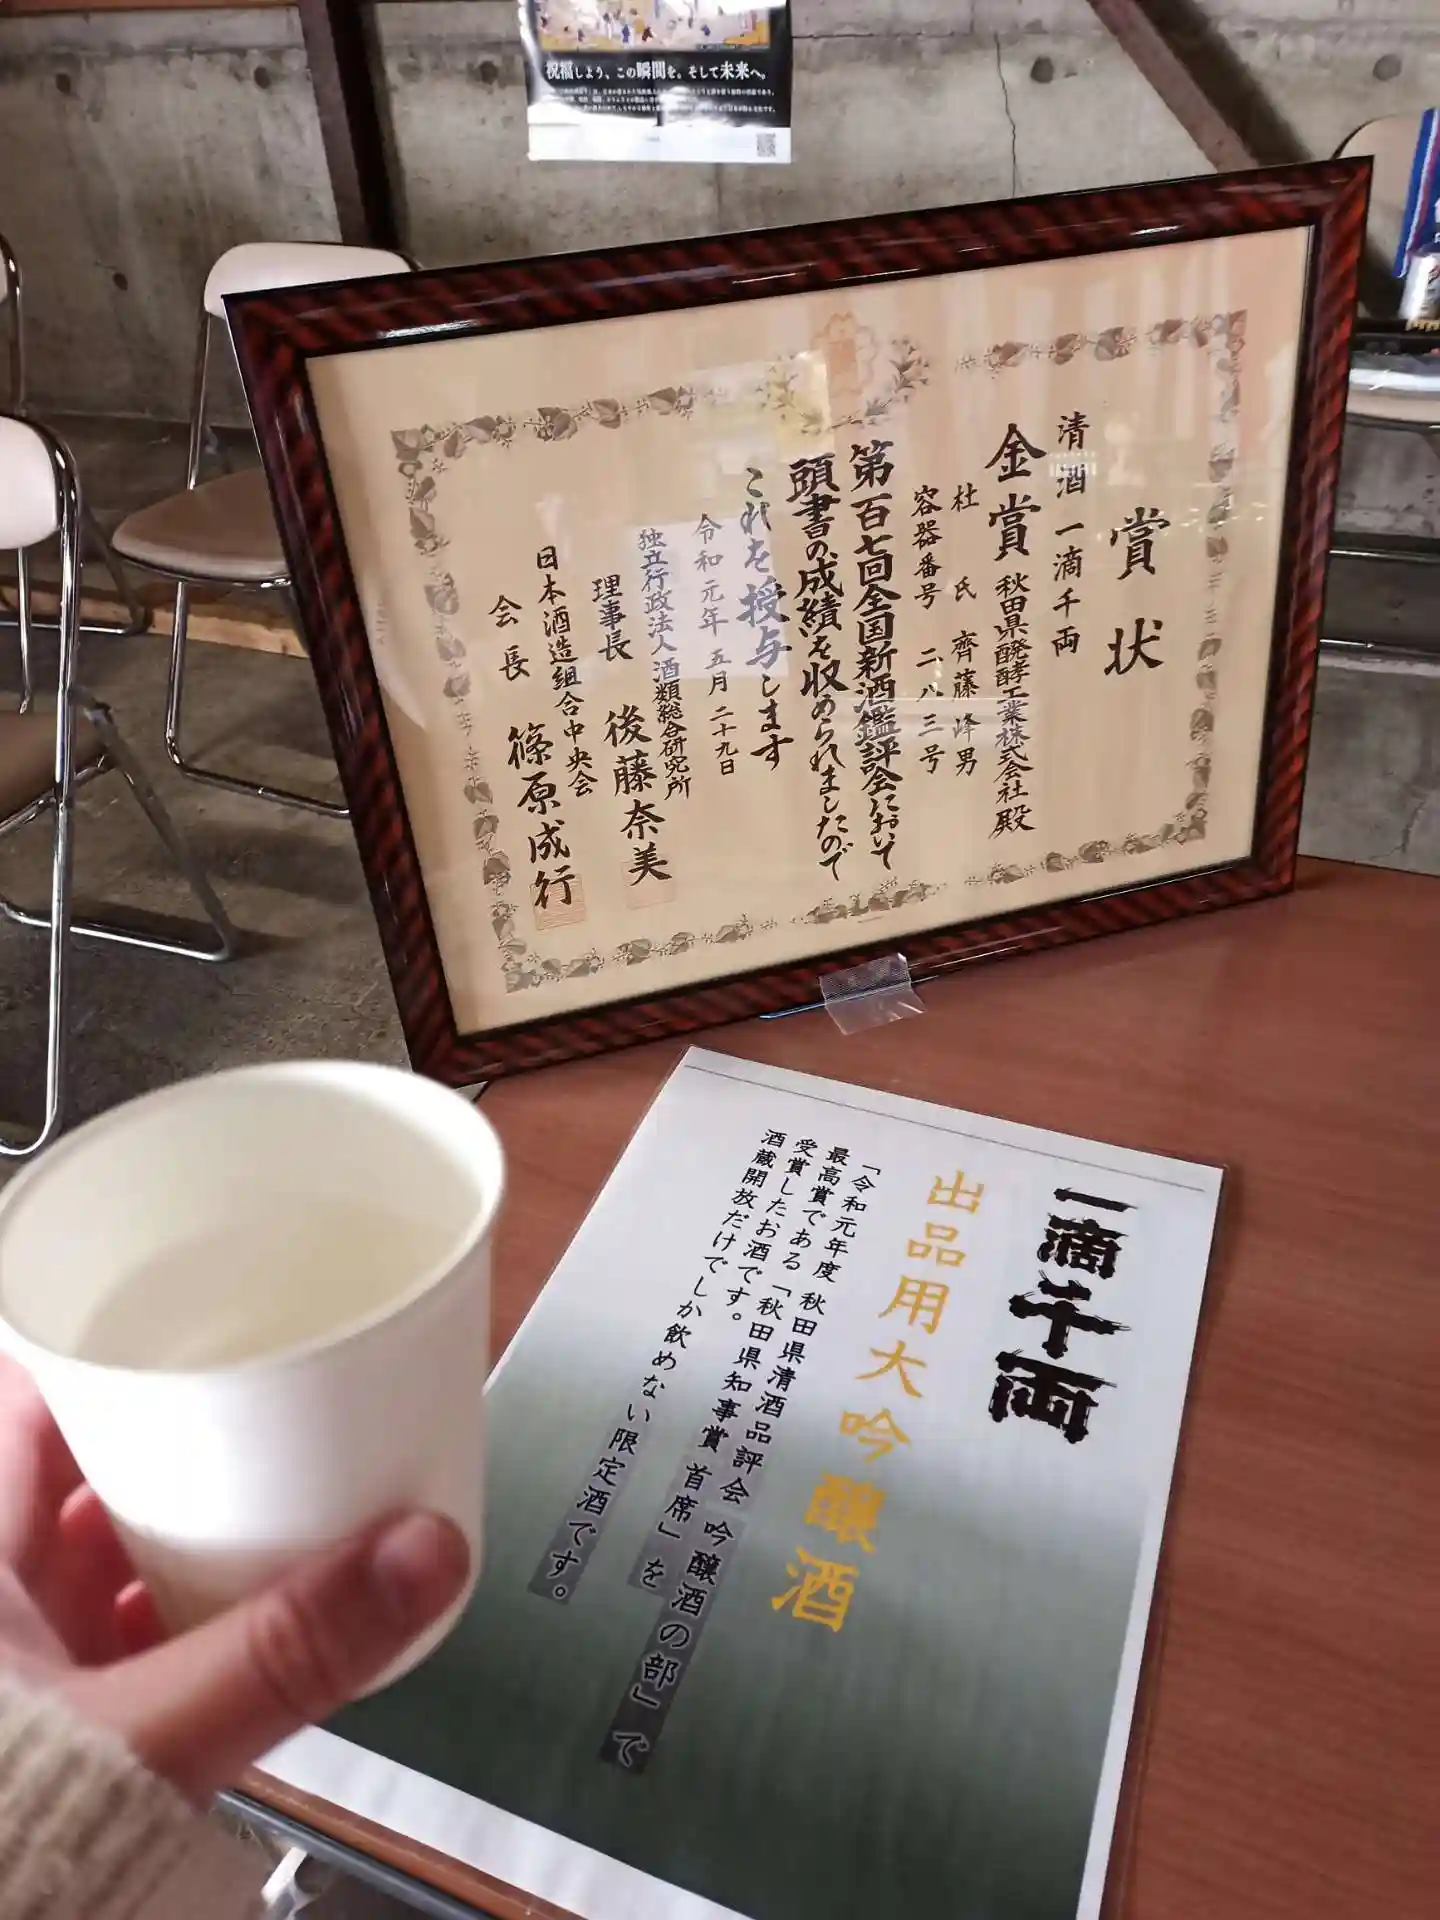 祝福しよう、この瞬間を。そして未来へ。
賞状
清酒 一滴千両
金賞 秋田県醗酵工業株式会社殿
杜氏 齊藤峰男
容器番号 二八三号
第百七回全国新酒鑑評会において
頭書の成績を収められましたので
これを授与します
令和元年五月二十九日
独立行政法人酒類総合研究所
理事長 後藤奈美
日本酒造組合中央会
会長 篠原成行
一滴千両
出品用大吟醸酒
「令和元年度 秋田県清酒品評会 吟醸酒の部」で
最高賞である「秋田県知事賞 首席」を
受賞したお酒です。
酒蔵開放だけでしか飲めない限定酒です。